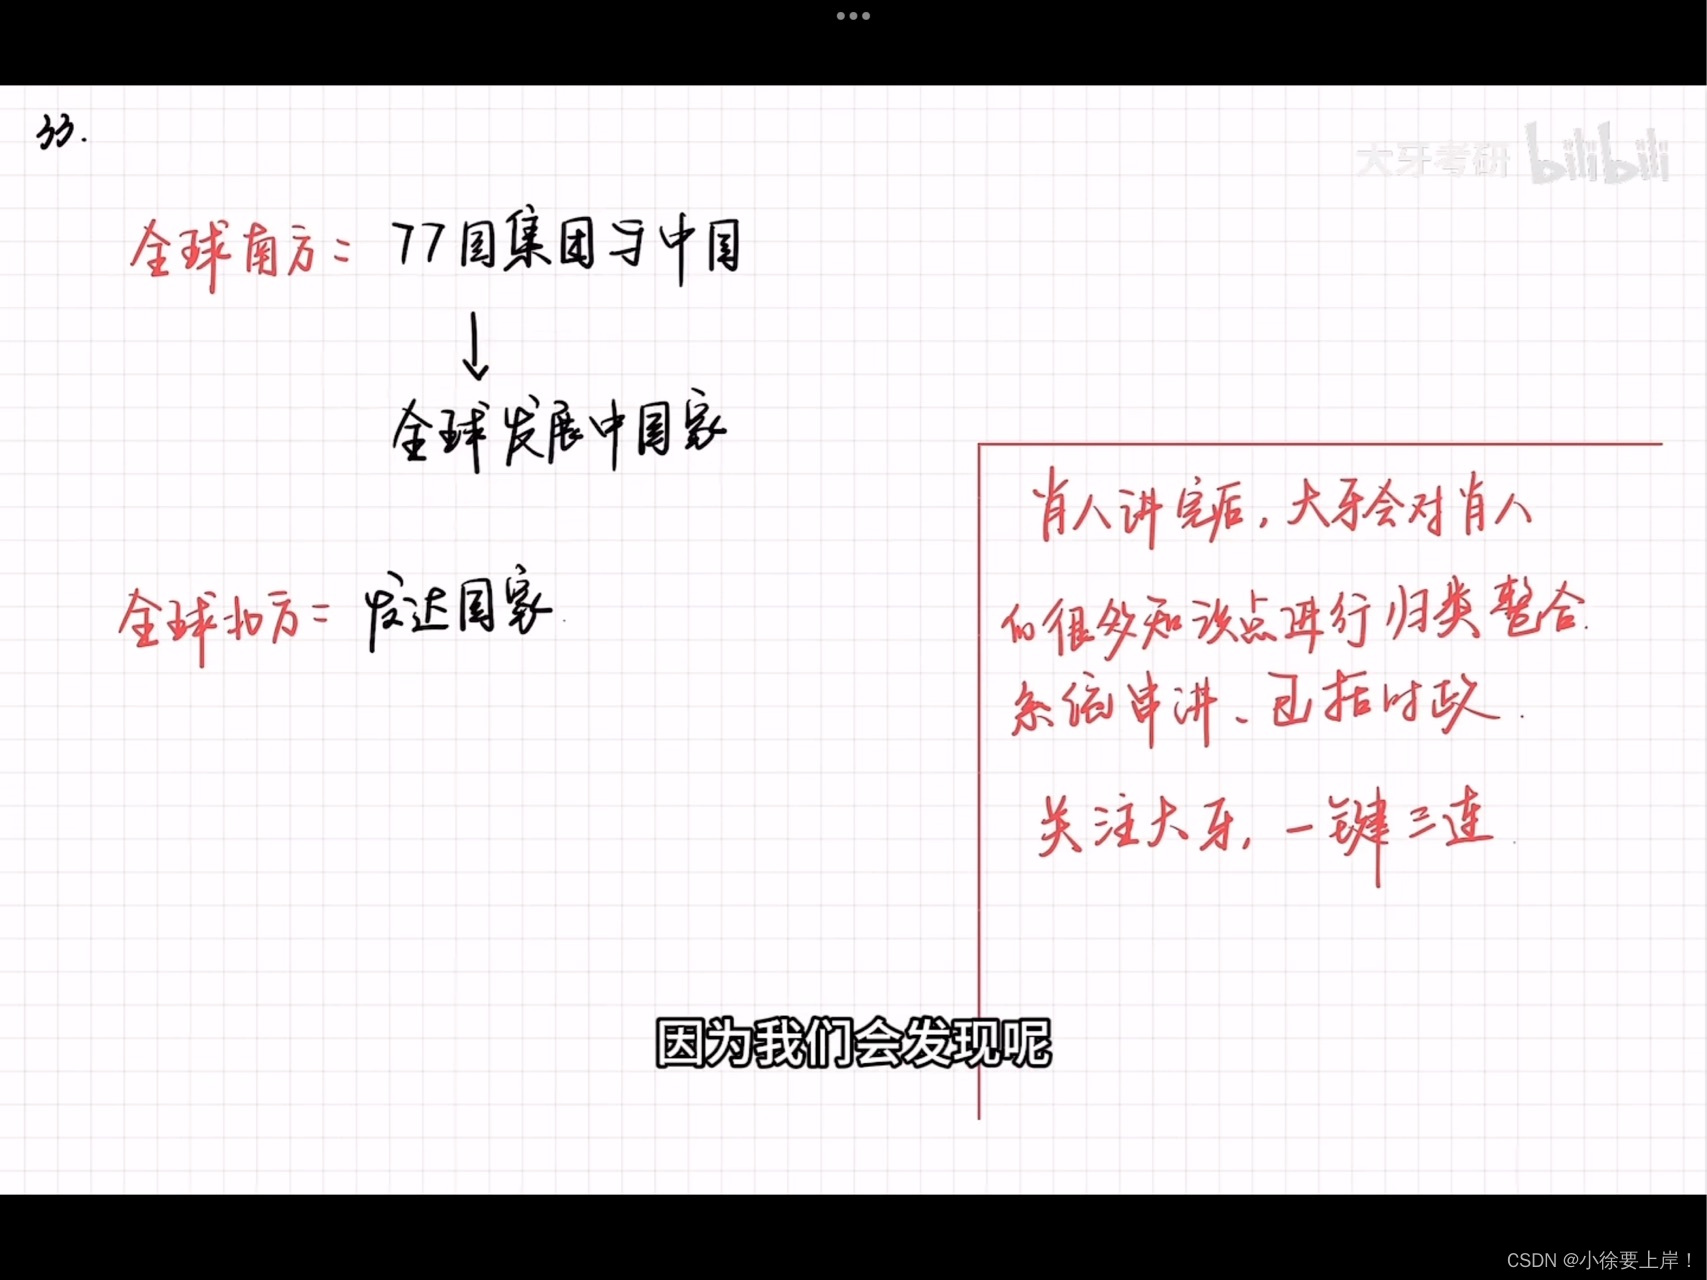 33.
大牙考研 bilibili
全球南方= 77国集团与中国
↓
全球发展中国家
全球北方= 发达国家.
肖八讲完后,大牙会对肖八
的很多知识点进行归类整合.
系统串讲、包括时政.
关注大牙,一键三连.
因为我们会发现呢
CSDN @小徐要上岸!